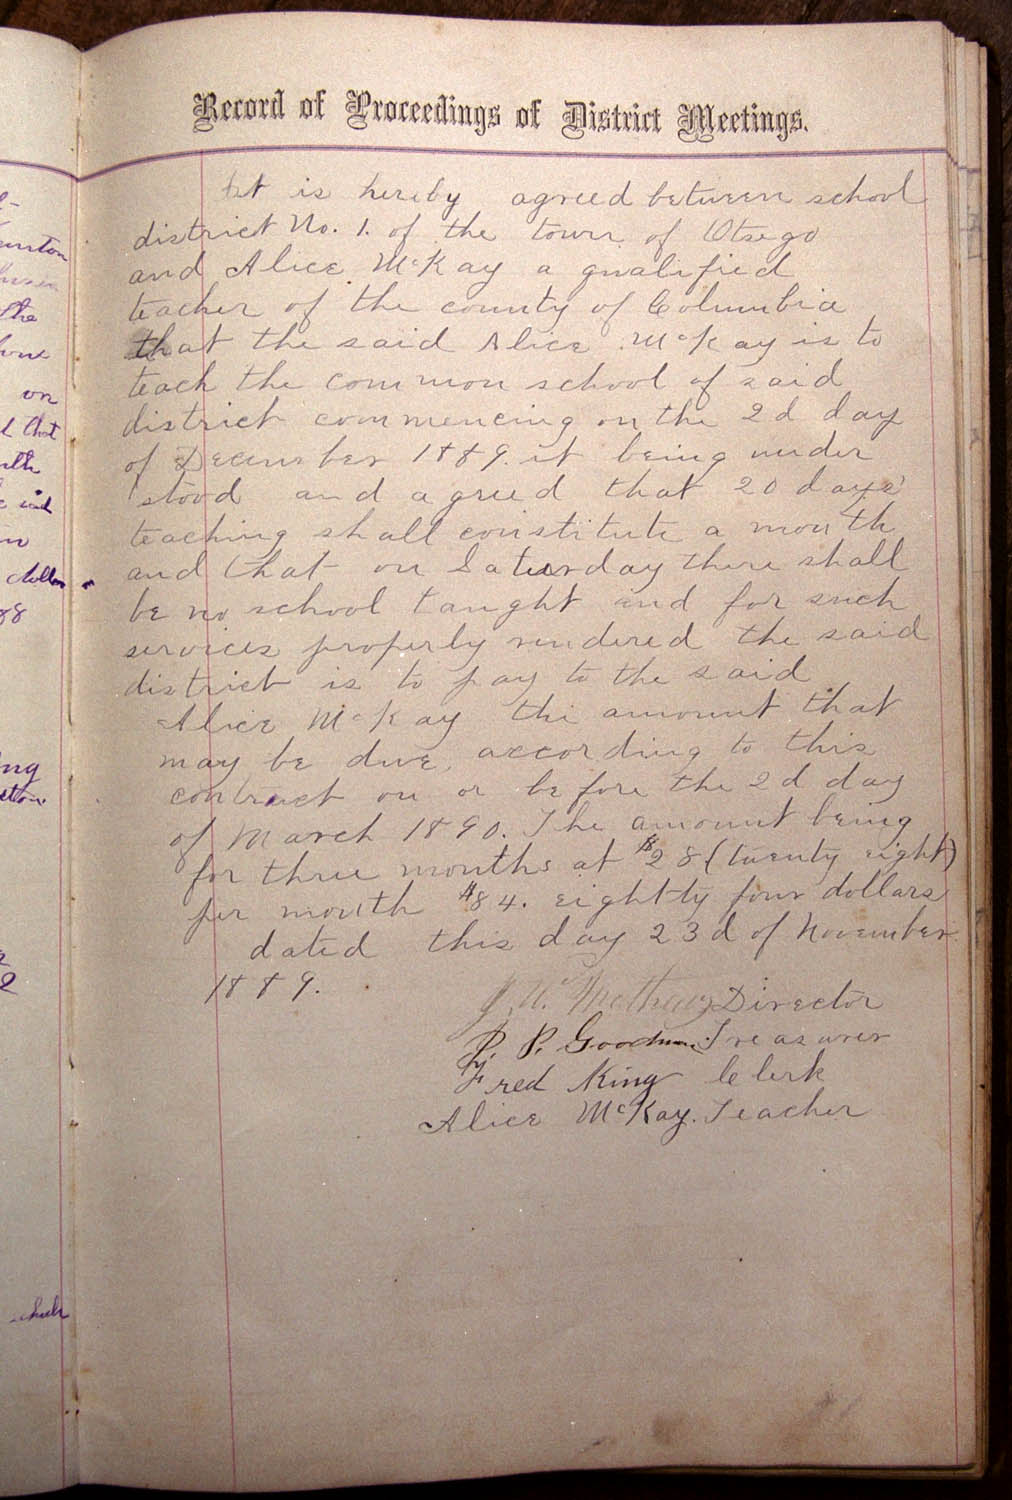 Record of Proceedings of District Meetings.
It is hereby agreed between school
district No. 1. of the town of Otsego
and Alice McKay a qualified
teacher of the county of Columbia
that the said Alice McKay is to
teach the common school of said
district commencing on the 2d day
of December 1889. it being under
stood and agreed that 20 days'
teaching shall constitute a month
and that on Saturday there shall
be no school taught and for such
services properly rendered the said
district is to pay to the said
Alice McKay the amount that
may be due, according to this
contract on or before the 2d day
of March 1890. The amount being
for three months at $28 (twenty eight)
per month $84. eighty four dollars
dated this day 23d of November
1889.
Director
P. P. Goodman Treasurer
Fred King Clerk
Alice McKay. Teacher
the
on
that
88